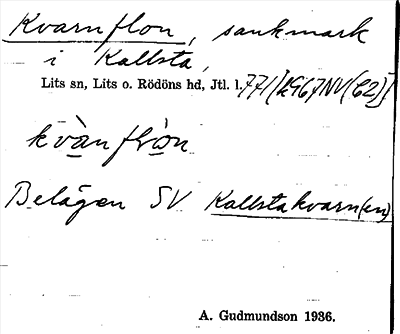 Kvarnflon, sankmark
i Kallsta,
Lits sn, Lits o. Rödöns hd, Jtl. l.
kvànflòn
Belägen SV Kallstakvarn(en)
A. Gudmundson 1936.